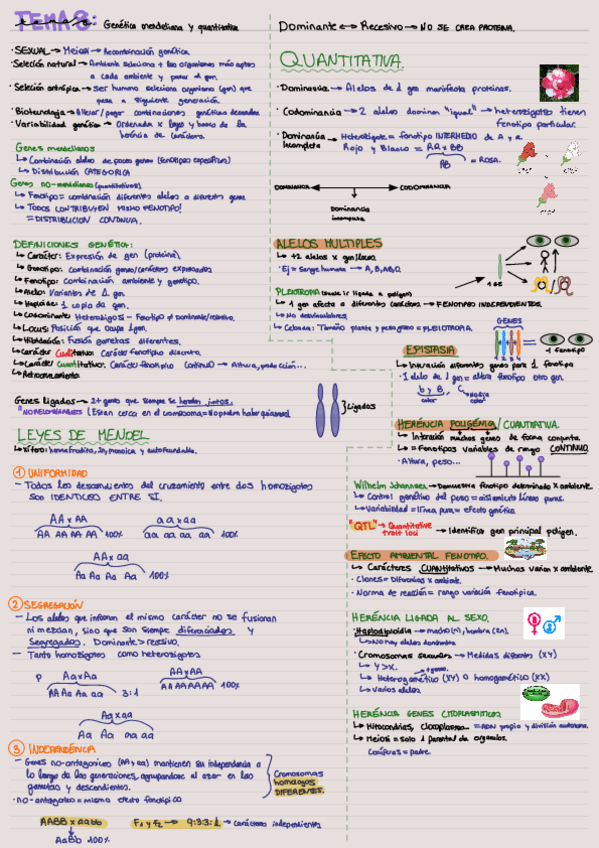 TEMA 3: Genética mendeliana y quantitativa
· SEXUAL → Meiosi → Recombinación genética
· Selección natural → Ambiente selecciona + los organismos más aptos
a cada ambiente y pasar el gen.
· Selección antrópica → ser humano selecciona organismo (gen) que
pasa a siguiente generación.
· Biotecnología → Alterar/pegar combinaciones genéticas deseadas
· Variabilidad genética → Ordenada x Leyes y bases de la
herencia de carácteres.
Genes mendelianos
↳ Combinación alelos de pocos genes (fenotipo específico)
↳ Distribución CATEGORICA
Genes no-mendelianos (quantitativos)
↳ Fenotipo = combinación diferentes alelos a diferentes genes
↳ TODOS CONTRIBUYEN MISMO FENOTIPO!
= DISTRIBUCIÓN CONTINUA.
DEFINICIONES GENÉTICA:
↳ Carácter: Expresión de gen (proteína).
↳ Genotipo: combinación genes/carácteres expresados
↳ Fenotipo: combinación ambiente y genotipo.
↳ Alelo: Variantes de 1 gen
↳ Haploide: 1 copia de gen.
↳ Codominante: Heterodigosi - Fenotipo ≠ dominante/recesivo.
↳ Locus: Posición que ocupa 1 gen.
↳ Hibridación: Fusión gametas diferentes.
↳ Carácter Cualitativo: Carácter fenotípico discreto.
↳ Carácter Cuantitativo: Carácter fenotípico continuo → Altura, producción...
↳ Retrocruzamiento
Genes Ligados → 2+ genes que siempre se heredan juntos.
"NO MENDELIANOS" (Están cerca en el cromosoma = No pueden haber quiasmas)
}Ligados
LEYES DE MENDEL
↳ x/fores: hermafrodita, 2n, monoica y autofecundable.
① UNIFORMIDAD
- Todos los descendientes del cruzamiento entre dos homozigotos
son IDENTICOS ENTRE SI.
AA x AA
AA AA AA AA 100%
aa x aa
aa aa aa aa 100%
AA x aa
Aa Aa Aa Aa 100%
② SEGREGACIÓN
- Los alelos que informan el mismo carácter no se fusionan
ni mezclan, sino que son siempre diferenciados y
Segregados. Dominante > recesivo.
- Tanto homozigotos como heterozigotos
P Aa x Aa
AA Aa Aa aa 3:1
AA x AA
AA AA AA AA 100%
Aa x aa
Aa Aa aa aa
③ INDEPENDÈNCIA
- Genes no-antagónicos (AA y aa) mantienen su independencia a
lo largo de las generaciones, agrupandose al azar en las
gametas y descendientes.
· no-antagónico = mismo efecto fenotípico
Cromosomas
homologos
DIFERENTES.
AABB x aabb
↳ AaBb 100%
F1 y F2 → 9:3:3:1 → carácteres independientes
Dominante ↔ Recesivo → NO SE CREA PROTEINA.
QUANTITATIVA.
· Dominancia → Alelos de 1 gen manifiesta proteínas.
· Codominancia → 2 alelos dominan "igual" → heterozigotes tienen
fenotipo particular.
· Dominancia Incompleta
Heterozigote = fenotipo INTERMEDIO de A y R
Rojo y Blanco = AA x BB
AB = ROSA.
DOMINANCIA ↔ CODOMINANCIA
Dominancia
incompleta
ALELOS MULTIPLES
↳ +2 alelos x gen/locus.
· Ej = Sangre humana → A, B, AB, O.
PLEIOTROPIA (suele ir ligada a poligen)
↳ 1 gen afecta a diferentes carácteres → FENOTIPOS INDEPENDIENTES.
↳ No desvinculables
↳ Cebada: Tamaño planta y peso grano = PLEIOTROPIA.
1 GE
GENES
1 fenotipo
EPISTASIA
↳ Interacción diferentes genes para 1 fenotipo
· 1 alelo de 1 gen = altera fenotipo otro gen
b y B,
color
HERÉNCIA POLIGÉNICA/CUANTITATIVA.
↳ Interacción muchos genes de forma conjunta.
↳ = Fenotipos variables de rango CONTINUO.
· Altura, peso...
Wilhelm Johannsen → Demuestra fenotipo determinado x ambiente.
↳ Control genético del peso = aislamiento líneas puras.
↳ Variabilidad = línea pura = efecto genético
"QTL" → Quantitative
trait loci
→ Identifica gen principal poligen.
EFECTO AMBIENTAL FENOTIPO.
↳ Carácteres CUANTItativos → Muchos varian x ambiente
· Clones = Diferencias x ambiente.
· Norma de reacción = rango variación fenotípica.
HERÉNCIA LIGADA AL SEXO.
· Haplodiploidia → macho (n), hembra (2n).
↳ No hay alelos dominantes
· Cromosomas sexuales → Medidas diferentes (XY)
↳ Y > X.
↳ Heterogamético (XY) o homogamético (XX)
↳ Varios alelos
HERÉNCIA GENES CITOPLASMÁTICOS
↳ Mitocondrias, cloroplastos = ADN propio y división autónoma.
↳ Meiosi = solo 1 parental da organulos.
Coníferas = padre.